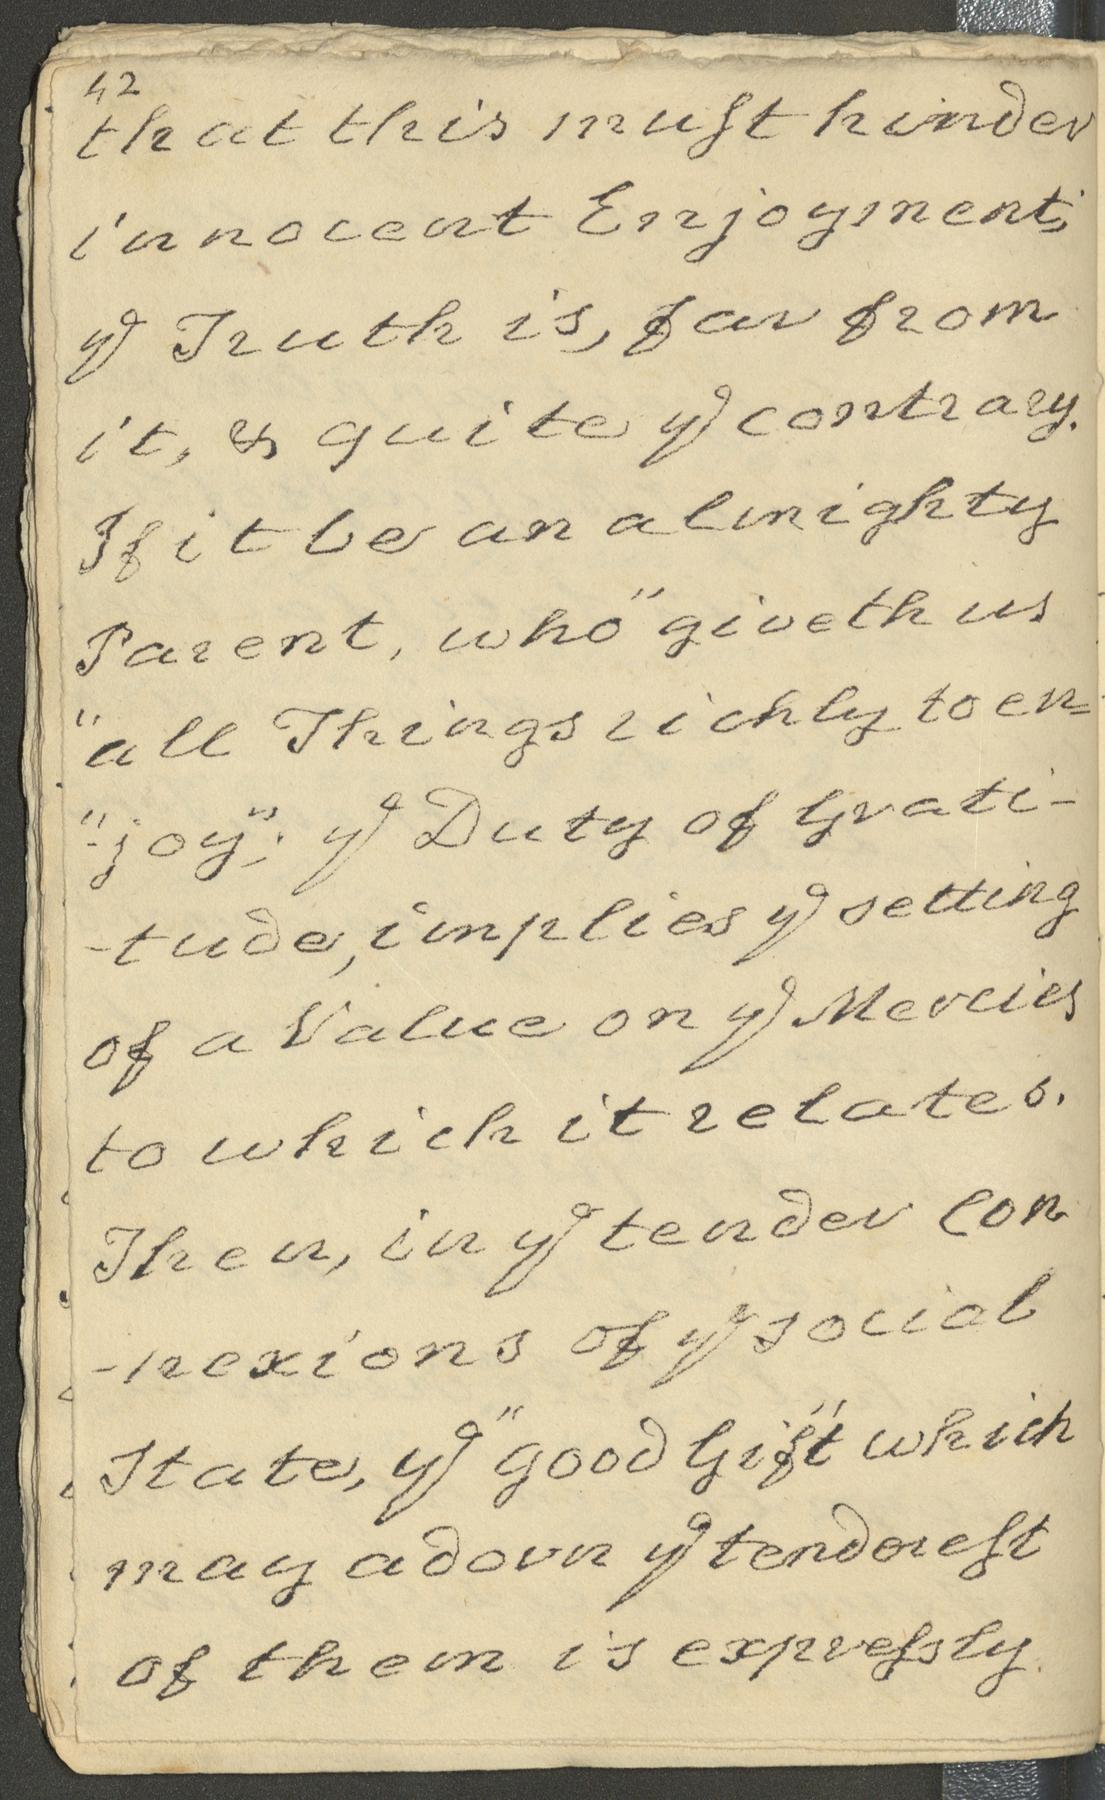 42
that this muſt hinder
innocent Enjoyment;
yᵉ Truth is, far from
it, & quite yᵉ contrary.
If it be an almighty
Parent, who "giveth us
"all Things richly to en=
"-joy"; yᵉ Duty of Grati-
-tude, implies yᵉ setting
of a Value on yᵉ Mercies
to which it relates.
Then, in yᵉ tender Con
-nexions of yᵉ social
State, yᵉ "good Gift" which
may adorn yᵉ tenderest
of them is expreſsly